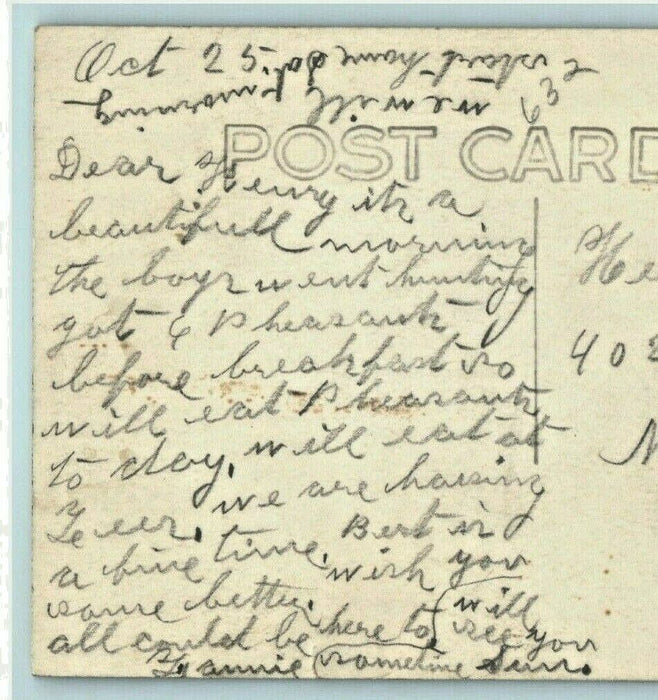 Oct 25.
we will start home Sat.
morning
63
POST CARD
Dear Henry its a
beautifull morning
the boys went hunting
got 6 Pheasants
before breakfast so
will eat Pheasants
to day. will eat at
we are having
a fine time. Bert is
some better. wish you
all could be here to
(will see you
sometime Sun.
Fannie
He
402
N